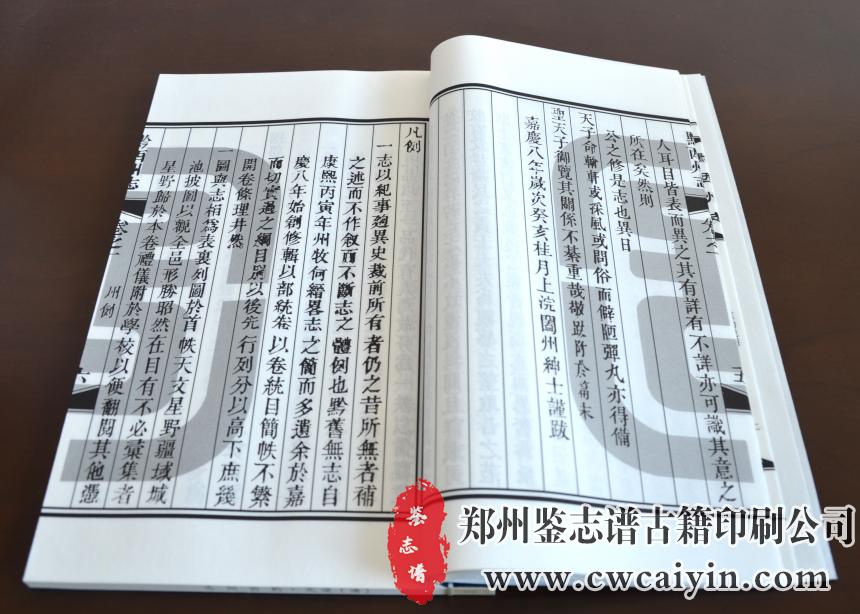 黔西州志 卷之
人耳目皆表而異之其有詳有不詳亦可識其意之
所在矣然則
公之修是志也異日
天子命輶軒或採風或問俗而僻陋彈丸亦得備
聖天子御覽其關係不綦重哉敬跋附卷篇末
嘉慶八年歲次癸亥桂月上浣闔州紳士謹跋
五
凡例
一志以紀事迥異史裁前所有者仍之昔所無者補
之述而不作叙而不斷志之體例也黔舊無志自
康熙丙寅年州牧何緝畧志之簡而多遺余於嘉
慶八年始創修輯以部統卷以卷統目簡帙不繁
而切實過之綱目題以後先行列分以高下庶幾
開卷條理井然
一圖與志相為表裏列圖於首帙天文星野疆域城
池披圖以觀全邑形勝昭然在目有不必彙集者
星野歸於本卷禮儀附於學校以便翻閱其他憑
黔西州志 卷之
六
鉴志谱
郑州鉴志谱古籍印刷公司
www.cwcaiyin.com